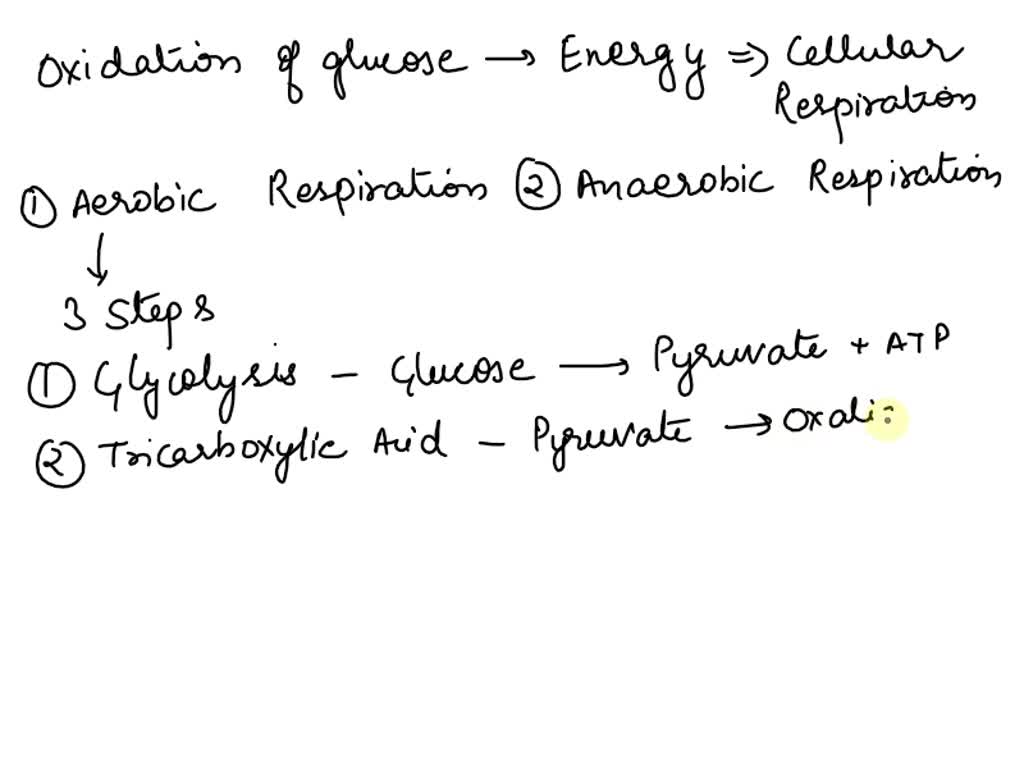 Oxidation of glucose → Energy ⇒ Cellular
Respiration
① Aerobic Respiration ② Anaerobic Respiration
↓
3 Steps
① Glycolysis - Glucose → Pyruvate + ATP
② Tricarboxylic Acid - Pyruvate → Oxali